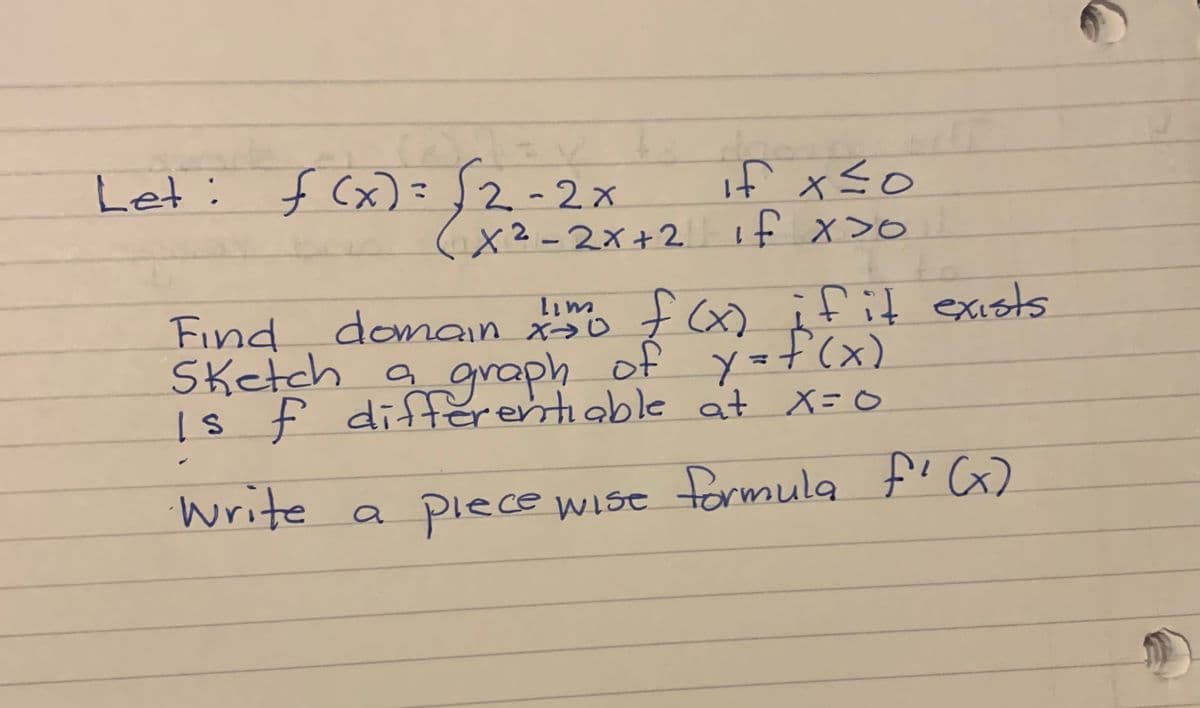 Let : f (x) = { 2 - 2x if x ≤ 0
x² - 2x + 2 if x > 0
Find domain lim x→0 f (x) if it exists
Sketch a graph of y = f (x)
Is f differentiable at x = 0
Write a piece wise formula f' (x)